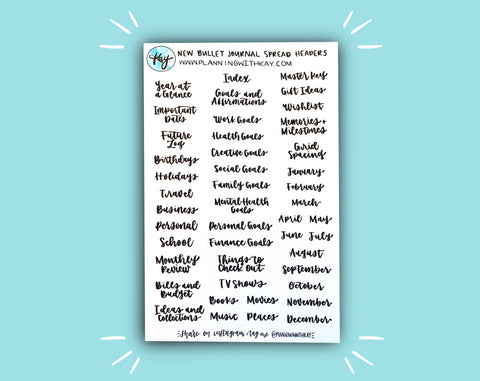 Kay
NEW BULLET JOURNAL SPREAD HEADERS
WWW.PLANNINGWITHKAY.COM
Year at
a Glance
Important
Dates
Future
Log
Birthdays
Holidays
Travel
Business
Personal
School
Monthly
Review
Bills and
Budget
Ideas and
Collections
Index
Goals and
Affirmations
Work Goals
Health Goals
Creative Goals
Social Goals
Family Goals
Mental Health
Goals
Personal Goals
Finance Goals
Things to
Check Out
TV Shows
Books Movies
Music Places
Master Key
Gift Ideas
Wishlist
Memories +
Milestones
Grid
Spacing
January
February
March
April May
June July
August
September
October
November
December
share on instagram + tag me @PLANNINGWITHKAY